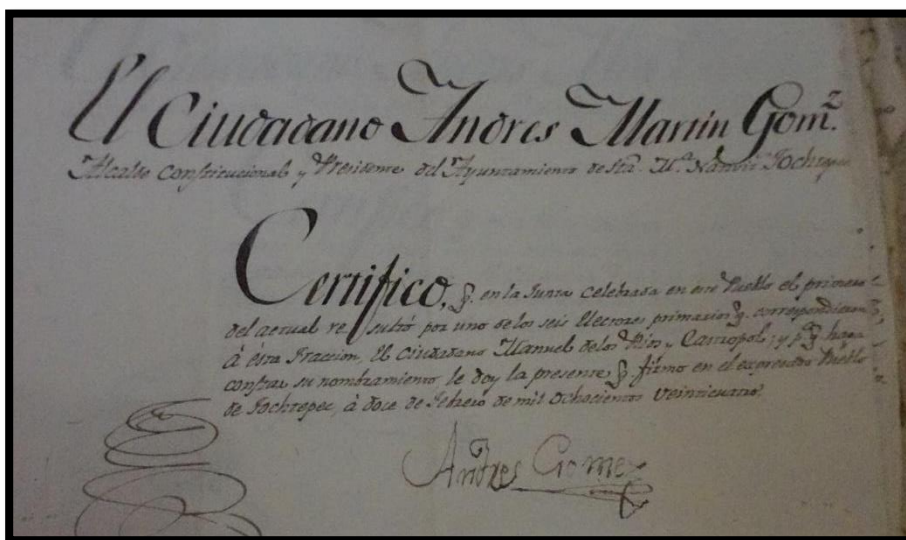 El Ciudadano Andres Martin Gomz.
Alcalde Constitucional y Presidente del Ayuntamiento de Sta. Ma. Nanvi Tochtepec
Certifico, q. en la Junta celebrada en este Pueblo el primero
del actual resultó por uno de los seis Electores primarios q. correspondieron
á ésta Fraccion, El Ciudadano Manuel de los Rios y Castropol; y p.a q. haga
constar su nombramiento le doy la presente q. firmo en el expresado Pueblo
de Tochtepec, à doce de Febrero de mil ochocientos veinticuatro.
Andres Gomez